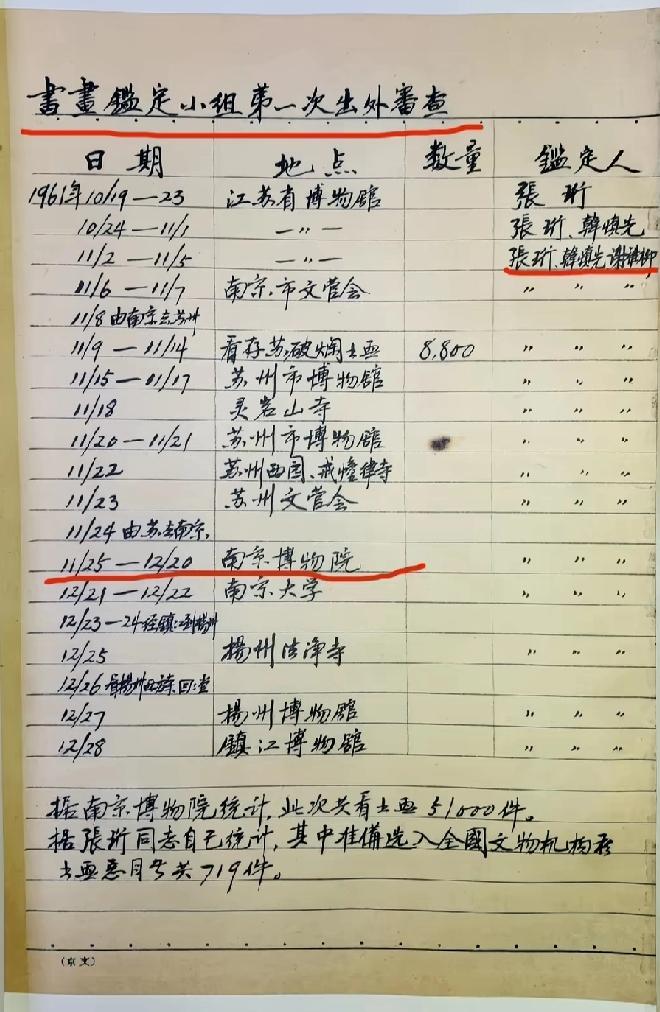 書畫鑑定小组第一次出外審查
日期 地点 数量 鑑定人
1961年10/19—23 江苏省博物館 張珩
10/24—11/1 —〃— 張珩、韓慎先
11/2—11/5 —〃— 張珩、韓慎先 謝稚柳
11/6—11/7 南京市文菅会 〃 〃 〃
11/8 由南京去苏州
11/9—11/14 看存苏破烂书画 8,800 〃 〃 〃
11/15—11/17 苏州市博物館 〃 〃 〃
11/18 灵岩山寺 〃 〃 〃
11/20—11/21 苏州市博物館 〃 〃 〃
11/22 苏州西园、戒幢律寺 〃 〃 〃
11/23 苏州文菅会 〃 〃 〃
11/24 由苏去南京.
11/25—12/20 南京博物院 〃 〃 〃
12/21—12/22 南京大学 〃 〃 〃
12/23—24 经鎮江到揚州
12/25 揚州法净寺 〃 〃 〃
12/26 看揚州
12/27 揚州博物館 〃 〃 〃
12/28 鎮江博物館 〃 〃 〃
据南京博物院统计,此次共看书画51000件。
据張珩同志自己统计,其中准備选入全國文物机构
书画目 共719件。
(京文)